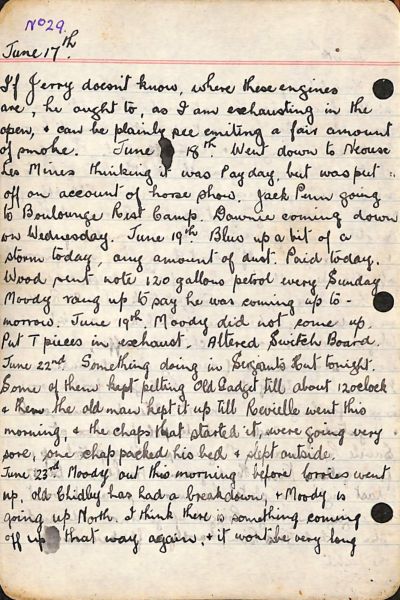 No 29.
June 17th.
If Jerry doesn't know, where these engines
are, he ought to, as I am exhausting in the
open, & can be plainly see emiting a fair amount
of smoke. June 18th. Went down to Neouse
Les Mines thinking it was Payday, but was put
off on account of horse show. Jack Penn going
to Boulounge Rest Camp. Downie coming down
on Wednesday. June 19th Blew up a bit of a
storm today, any amount of dust. Paid today.
Wood sent note 120 gallons petrol every Sunday
Moody rang up to say he was coming up to-
morrow. June 19th Moody did not come up.
Put T pieces in exhaust. Altered Switch Board.
June 22nd. Something doing in Sergants Hut tonight.
Some of them kept pelting Old Gadget till about 12oclock
& then the old man kept it up till Reveille went this
morning, & the chaps that started it, were going very
sore, one chap packed his bed & slept outside.
June 23rd Moody out this morning before lorries went
up, old Chidley has had a breakdown, & Moody is
going up North. I think there is something coming
off up that way again, & it wont be very long